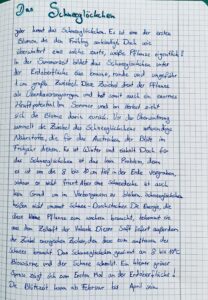 Das Schneeglöckchen
jeder kennt das Schneeglöckchen. Es ist eine der ersten
Blumen, die den Frühling ankündigt. Doch wie
überwintert eine solche zarte, weiße Pflanze eigentlich?
In der Sommerzeit bildet das Schneeglöckchen unter
der Erdoberfläche eine braune, runde und ungefähr
4 cm große Zwiebel. Diese Zwiebel dient der Pflanze
als Überdauerungsorgan und hat somit auch ein enormes
Kraftpotential. Im Sommer und im Herbst zieht
sich die Blume darin zurück. Vor der Überwinterung
sammelt die Zwiebel des Schneeglöckchens notwendige
Nährstoffe, die für das Austreiben der Blüte im
Frühjahr dienen. Es ist Winter und eiskalt. Doch für
das Schneeglöckchen ist das kein Problem, denn
es ist um die 8 bis 10 cm tief in der Erde vergraben,
wohin es nicht friert. Aber eine Schneedecke ist auch
kein Grund um im Verborgenen zu bleiben. Schneeglöckchen
heißen nicht umsonst Schnee-Durchstecher. Die Energie, die
diese kleine Pflanze zum wachsen braucht, bekommt sie
aus dem Zellsaft der Vakuole. Dieser Saft liefert außerdem
der Zwiebel energischen Zucker, den diese zum auftauen des
Schnees benutzt. Das Schneeglöckchen gewinnt an 8 bis 10°C
Biowärme und der Schnee schmilzt. Ein kleiner grüner
Spross zeigt sich zum ersten Mal an der Erdoberfläche!
Die Blütezeit kann ab Februar bis April sein.